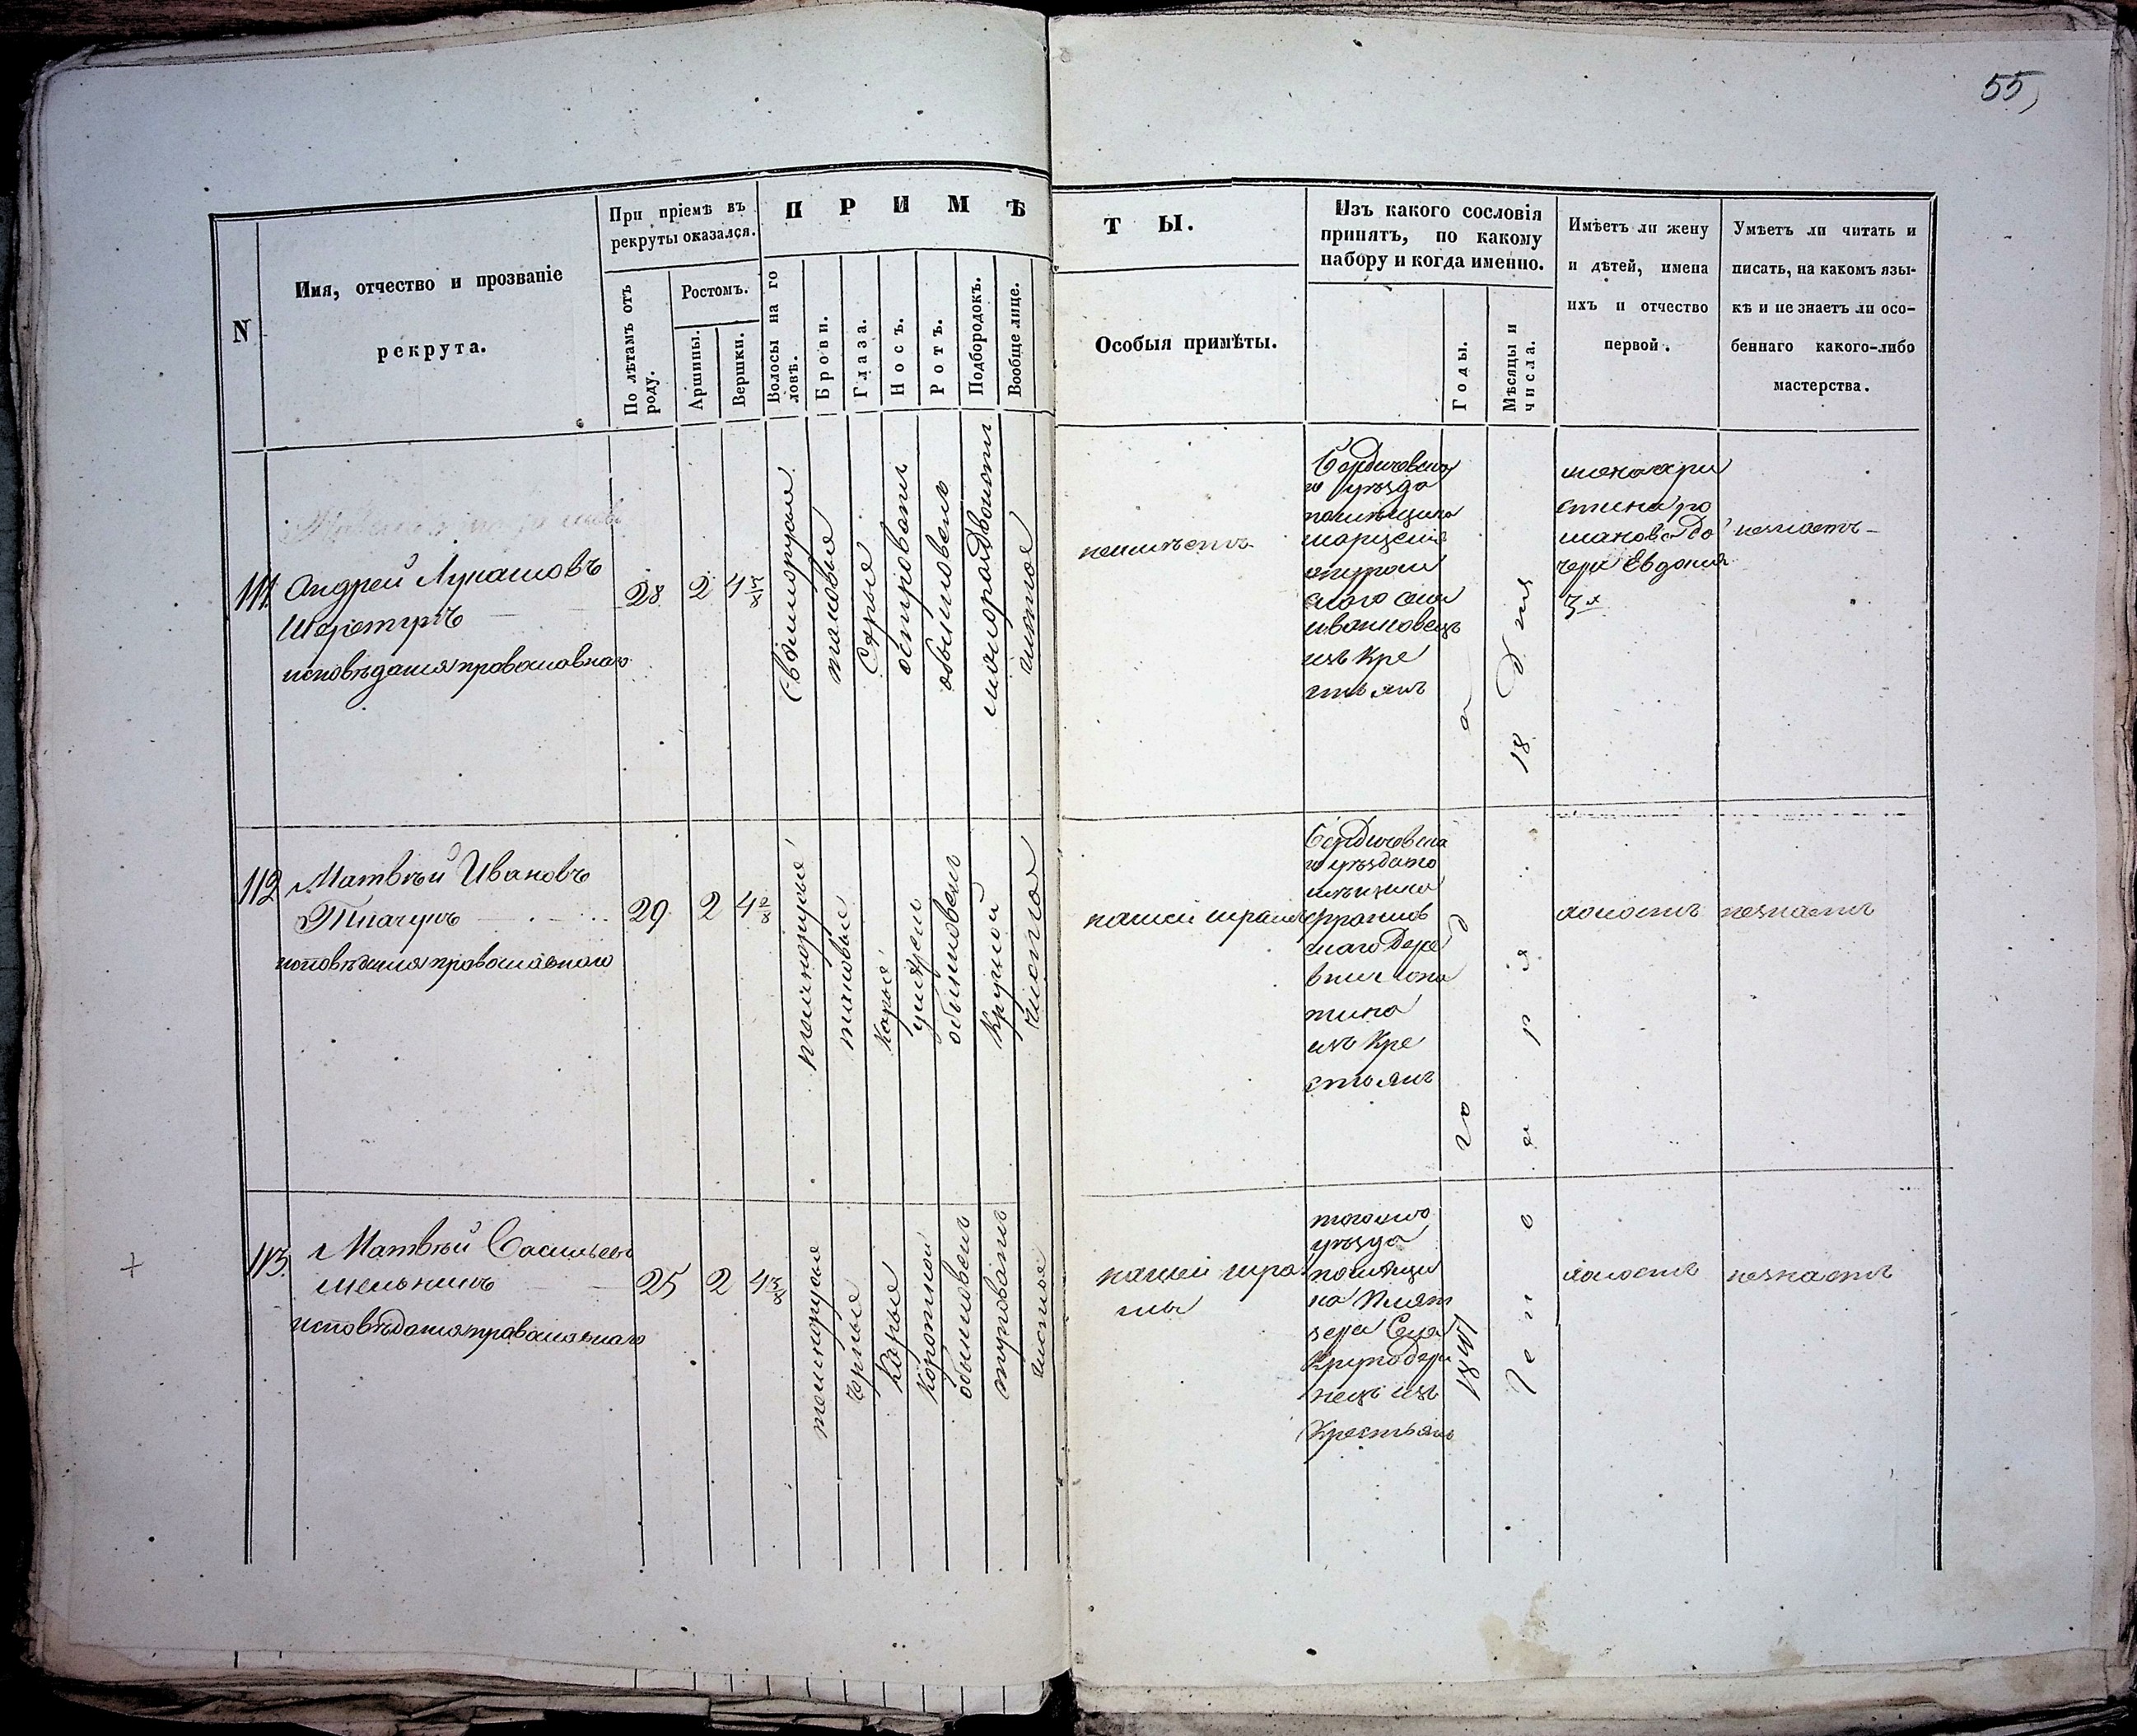 55
N
Имя, отчество и прозваніе
рекрута.
При пріемѣ въ
рекруты оказался.
По лѣтамъ отъ
роду.
Ростомъ.
Аршины.
Вершки.
ПРИМѢ
ТЫ.
Волосы на го
ловѣ.
Брови.
Глаза.
Носъ.
Ротъ.
Подбородокъ.
Вообще лице.
Особыя примѣты.
Изъ какого сословія
принятъ, по какому
набору и когда именно.
Годы.
Мѣсяцы и
числа.
Имѣетъ ли жену
и дѣтей, имена
ихъ и отчество
первой.
Умѣетъ ли читать и
писать, на какомъ язы-
кѣ и не знаетъ ли осо-
беннаго какого-либо
мастерства.
111
Андрей Лукашовъ
Шереметръ
исповѣданія православнаго
28
2
4
Свѣтлорусые
таковые
Сѣрые
обыкновенъ
чистое
неимѣетъ
Бердичевска
го уѣзда
помѣщика
иванковецъ
изъ Кре
стьянъ
жена Хри
стина Ро
манова до
чери Евдокія
незнаетъ
112
Матвѣй Ивановъ
Ткачукъ
исповѣданія православнаго
29
2
4 2/8
темнорусые
таковые
Карые
обыкновенъ
Круглой
Чистое
Бердичевска
го уѣзда по
мѣщика
изъ Кре
стьянъ
холостъ
незнаетъ
113.
Матвѣй Васильевъ
Мельникъ
исповѣданія православнаго
25
2
4 3/8
темнорусые
Чорные
Карые
Короткой
обыкновенъ
чистое
тогожъ
уѣзда
помѣщи
ка
Села
изъ
Крестьянъ
холостъ
незнаетъ
года
Генваря
18 Дня